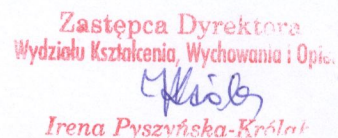 Zastępca Dyrektora
Wydziału Kształcenia, Wychowania i Opie.
Irena Pyszyńska-Królak